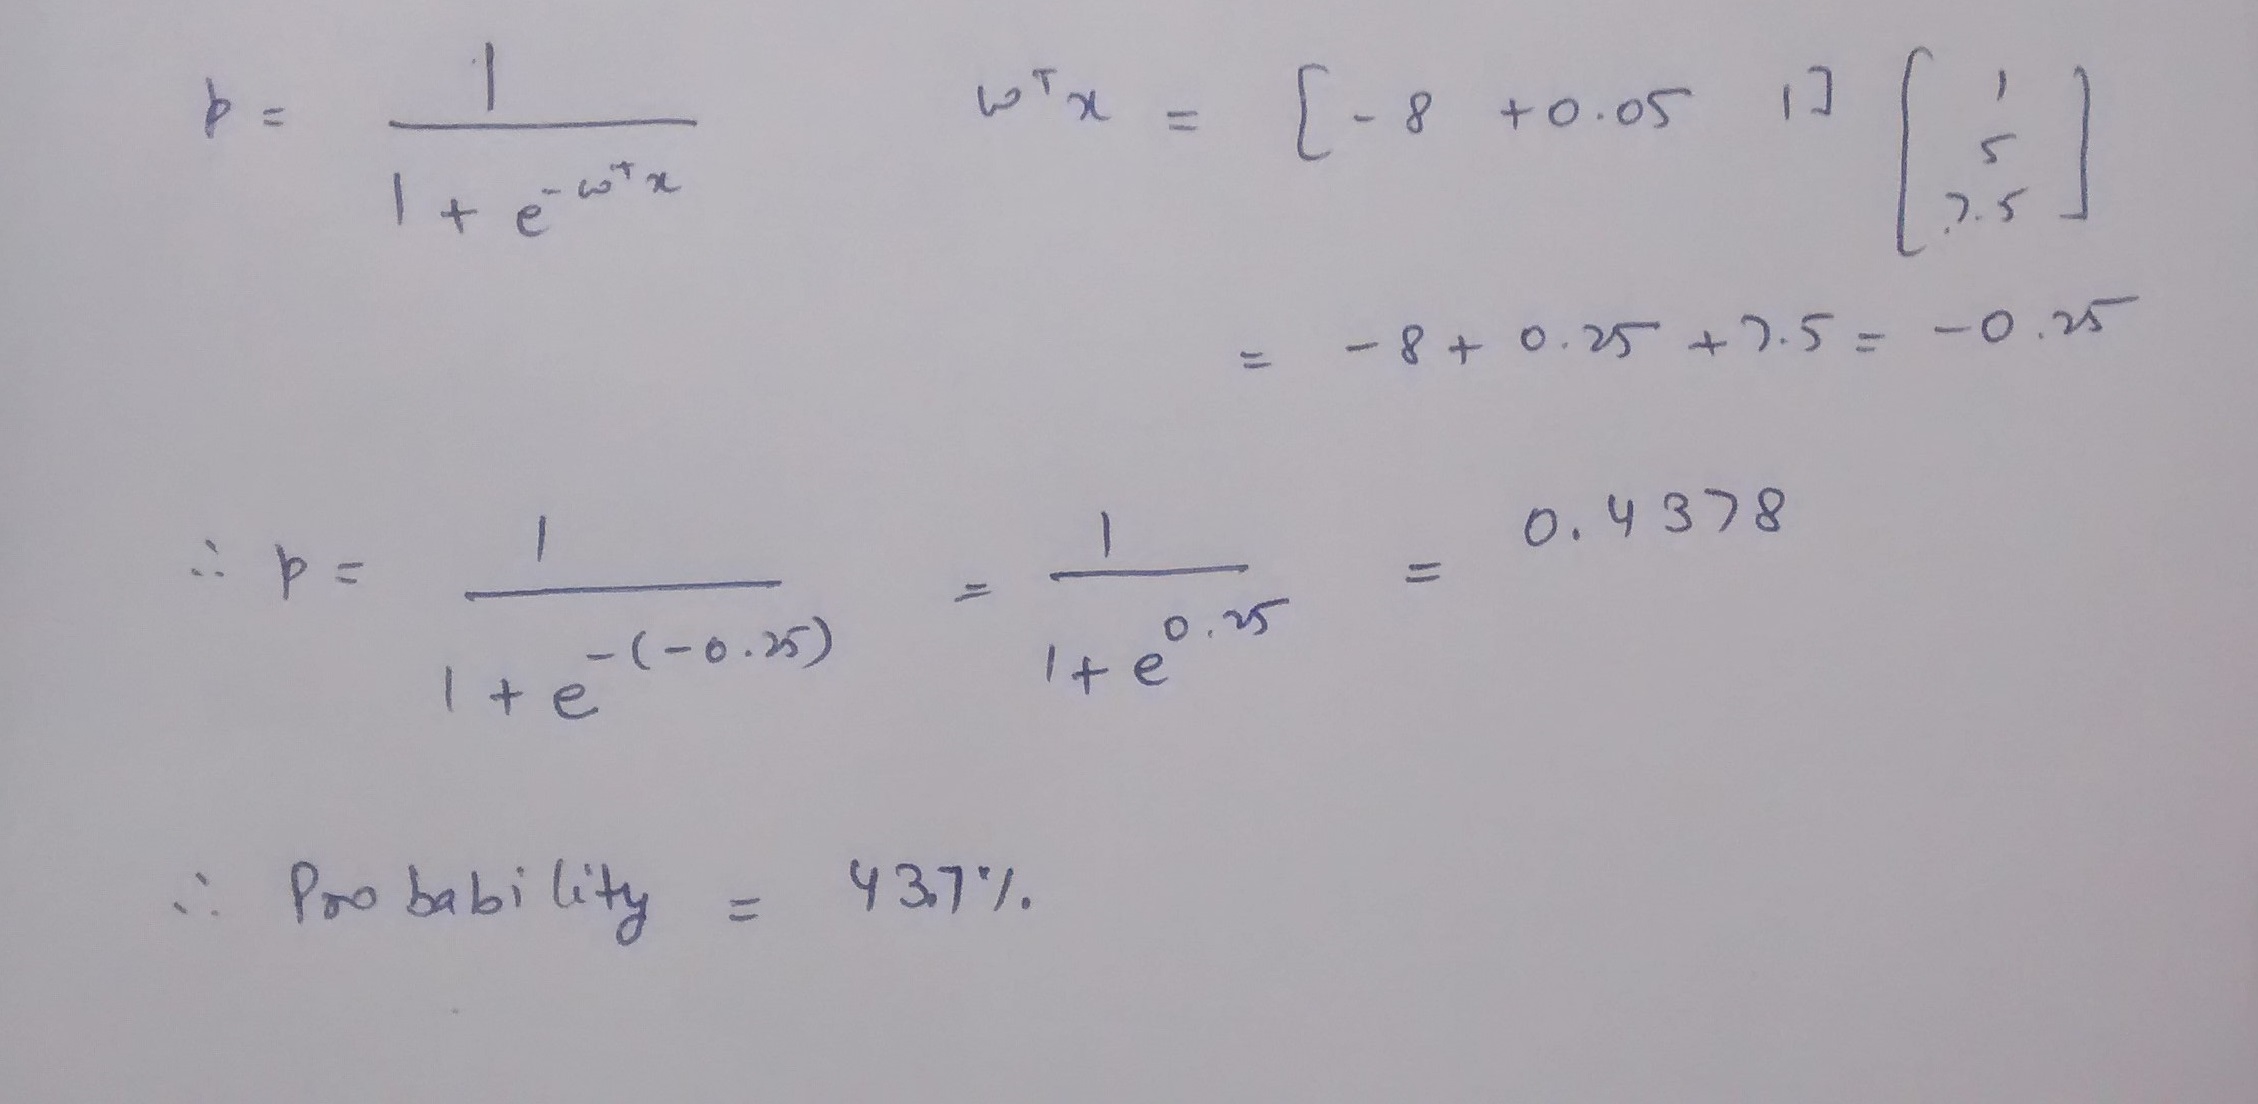 p = 1 / (1 + e^{-wᵀx})    wᵀx = [-8 +0.05 1] [1 5 7.5]
= -8 + 0.25 + 7.5 = -0.25
∴ p = 1 / (1 + e^{-(-0.25)}) = 1 / (1 + e^{0.25}) = 0.4378
∴ Probability = 43.7%.